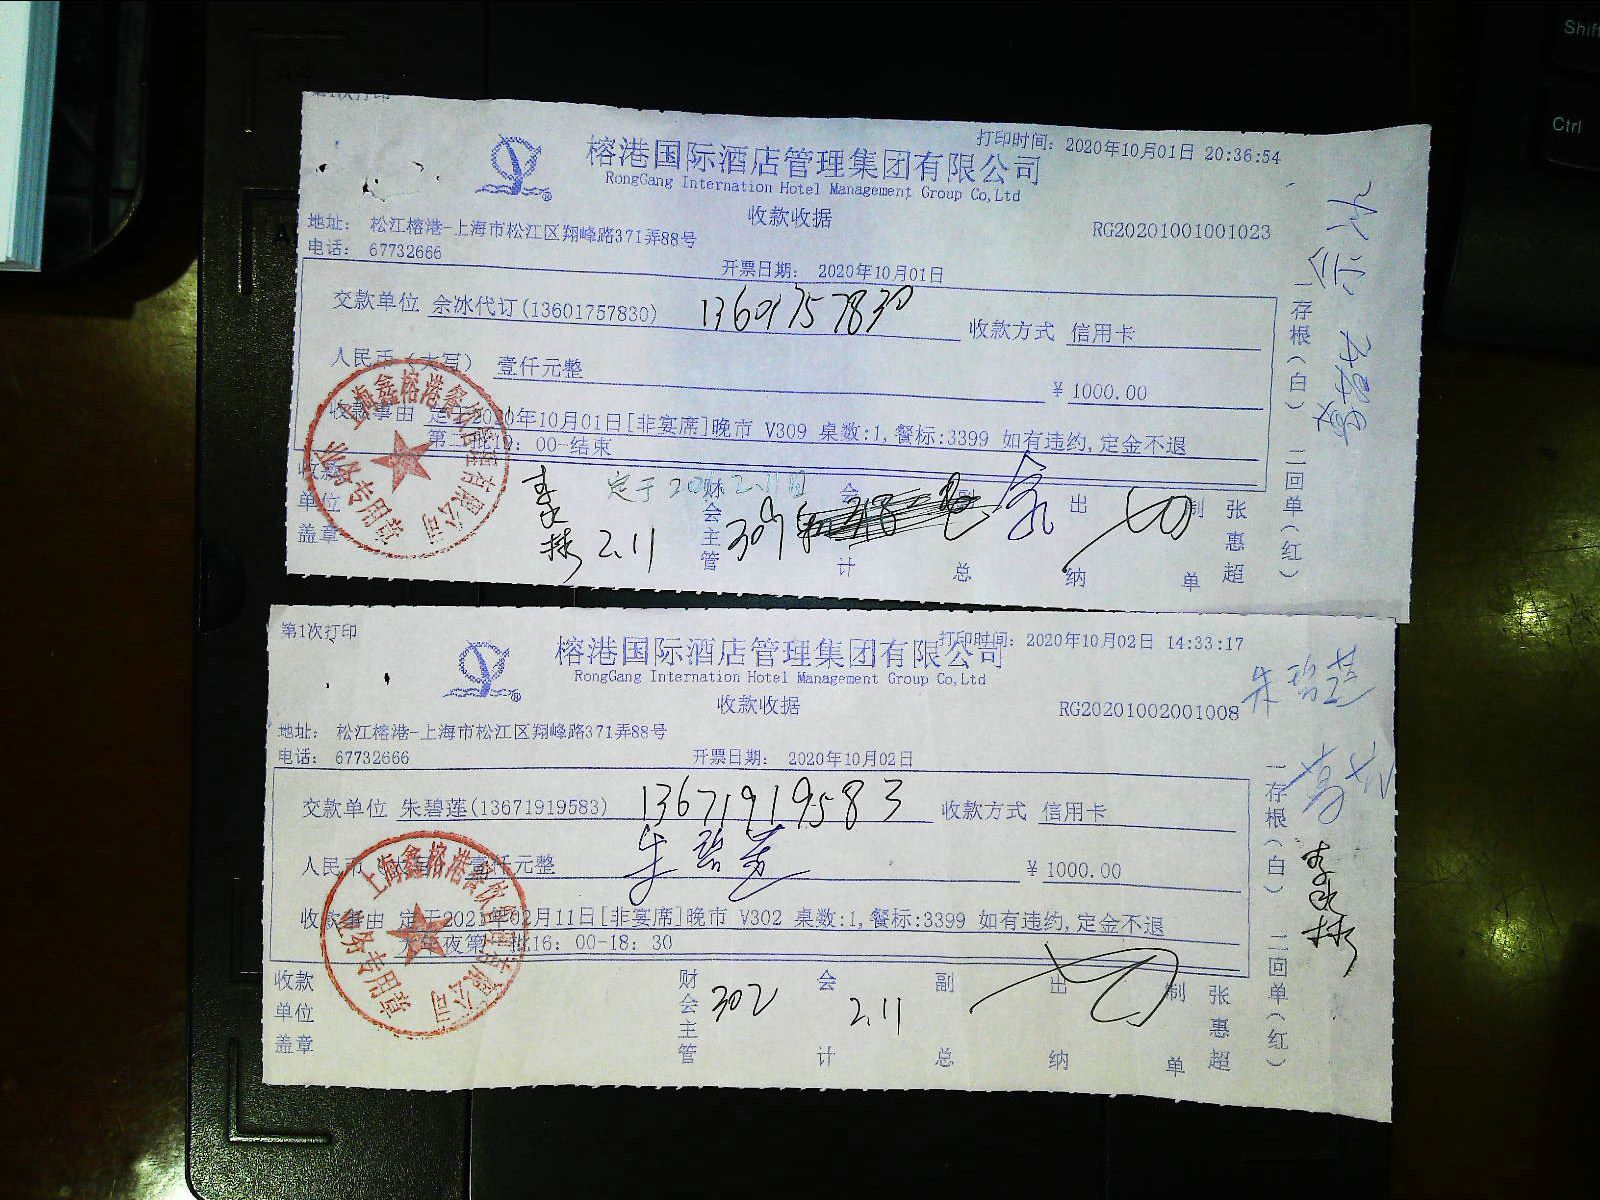 第1次打印
打印时间: 2020年10月01日 20:36:54
榕港国际酒店管理集团有限公司
RongGang Internation Hotel Management Group Co,Ltd
收款收据
RG20201001001023
地址: 松江榕港-上海市松江区翔峰路371弄88号
电话: 67732666
开票日期: 2020年10月01日
交款单位 余冰代订(13601757830) 13601757830 收款方式 信用卡
人民币(大写) 壹仟元整
¥ 1000.00
收款事由 定于2020年10月01日[非宴席]晚市 V309 桌数:1,餐标:3399 如有违约,定金不退
第二批19: 00-结束
收款单位盖章
2.11
财会主管
309
会计
副总
出纳
制单
张惠超
一存根(白) 二回单(红)
上海鑫榕港餐饮管理有限公司
业务专用章
第1次打印
打印时间: 2020年10月02日 14:33:17
榕港国际酒店管理集团有限公司
RongGang Internation Hotel Management Group Co,Ltd
收款收据
RG20201002001008
朱碧莲
地址: 松江榕港-上海市松江区翔峰路371弄88号
电话: 67732666
开票日期: 2020年10月02日
交款单位 朱碧莲(13671919583) 13671919583 收款方式 信用卡
朱碧莲
人民币(大写) 壹仟元整
¥ 1000.00
收款事由 定于2021年02月11日[非宴席]晚市 V302 桌数:1,餐标:3399 如有违约,定金不退
大年夜第一批16: 00-18: 30
收款单位盖章
财会主管
302
会计
2.11
副总
出纳
制单
张惠超
一存根(白) 二回单(红)
上海鑫榕港餐饮管理有限公司
业务专用章
Shift
Ctrl